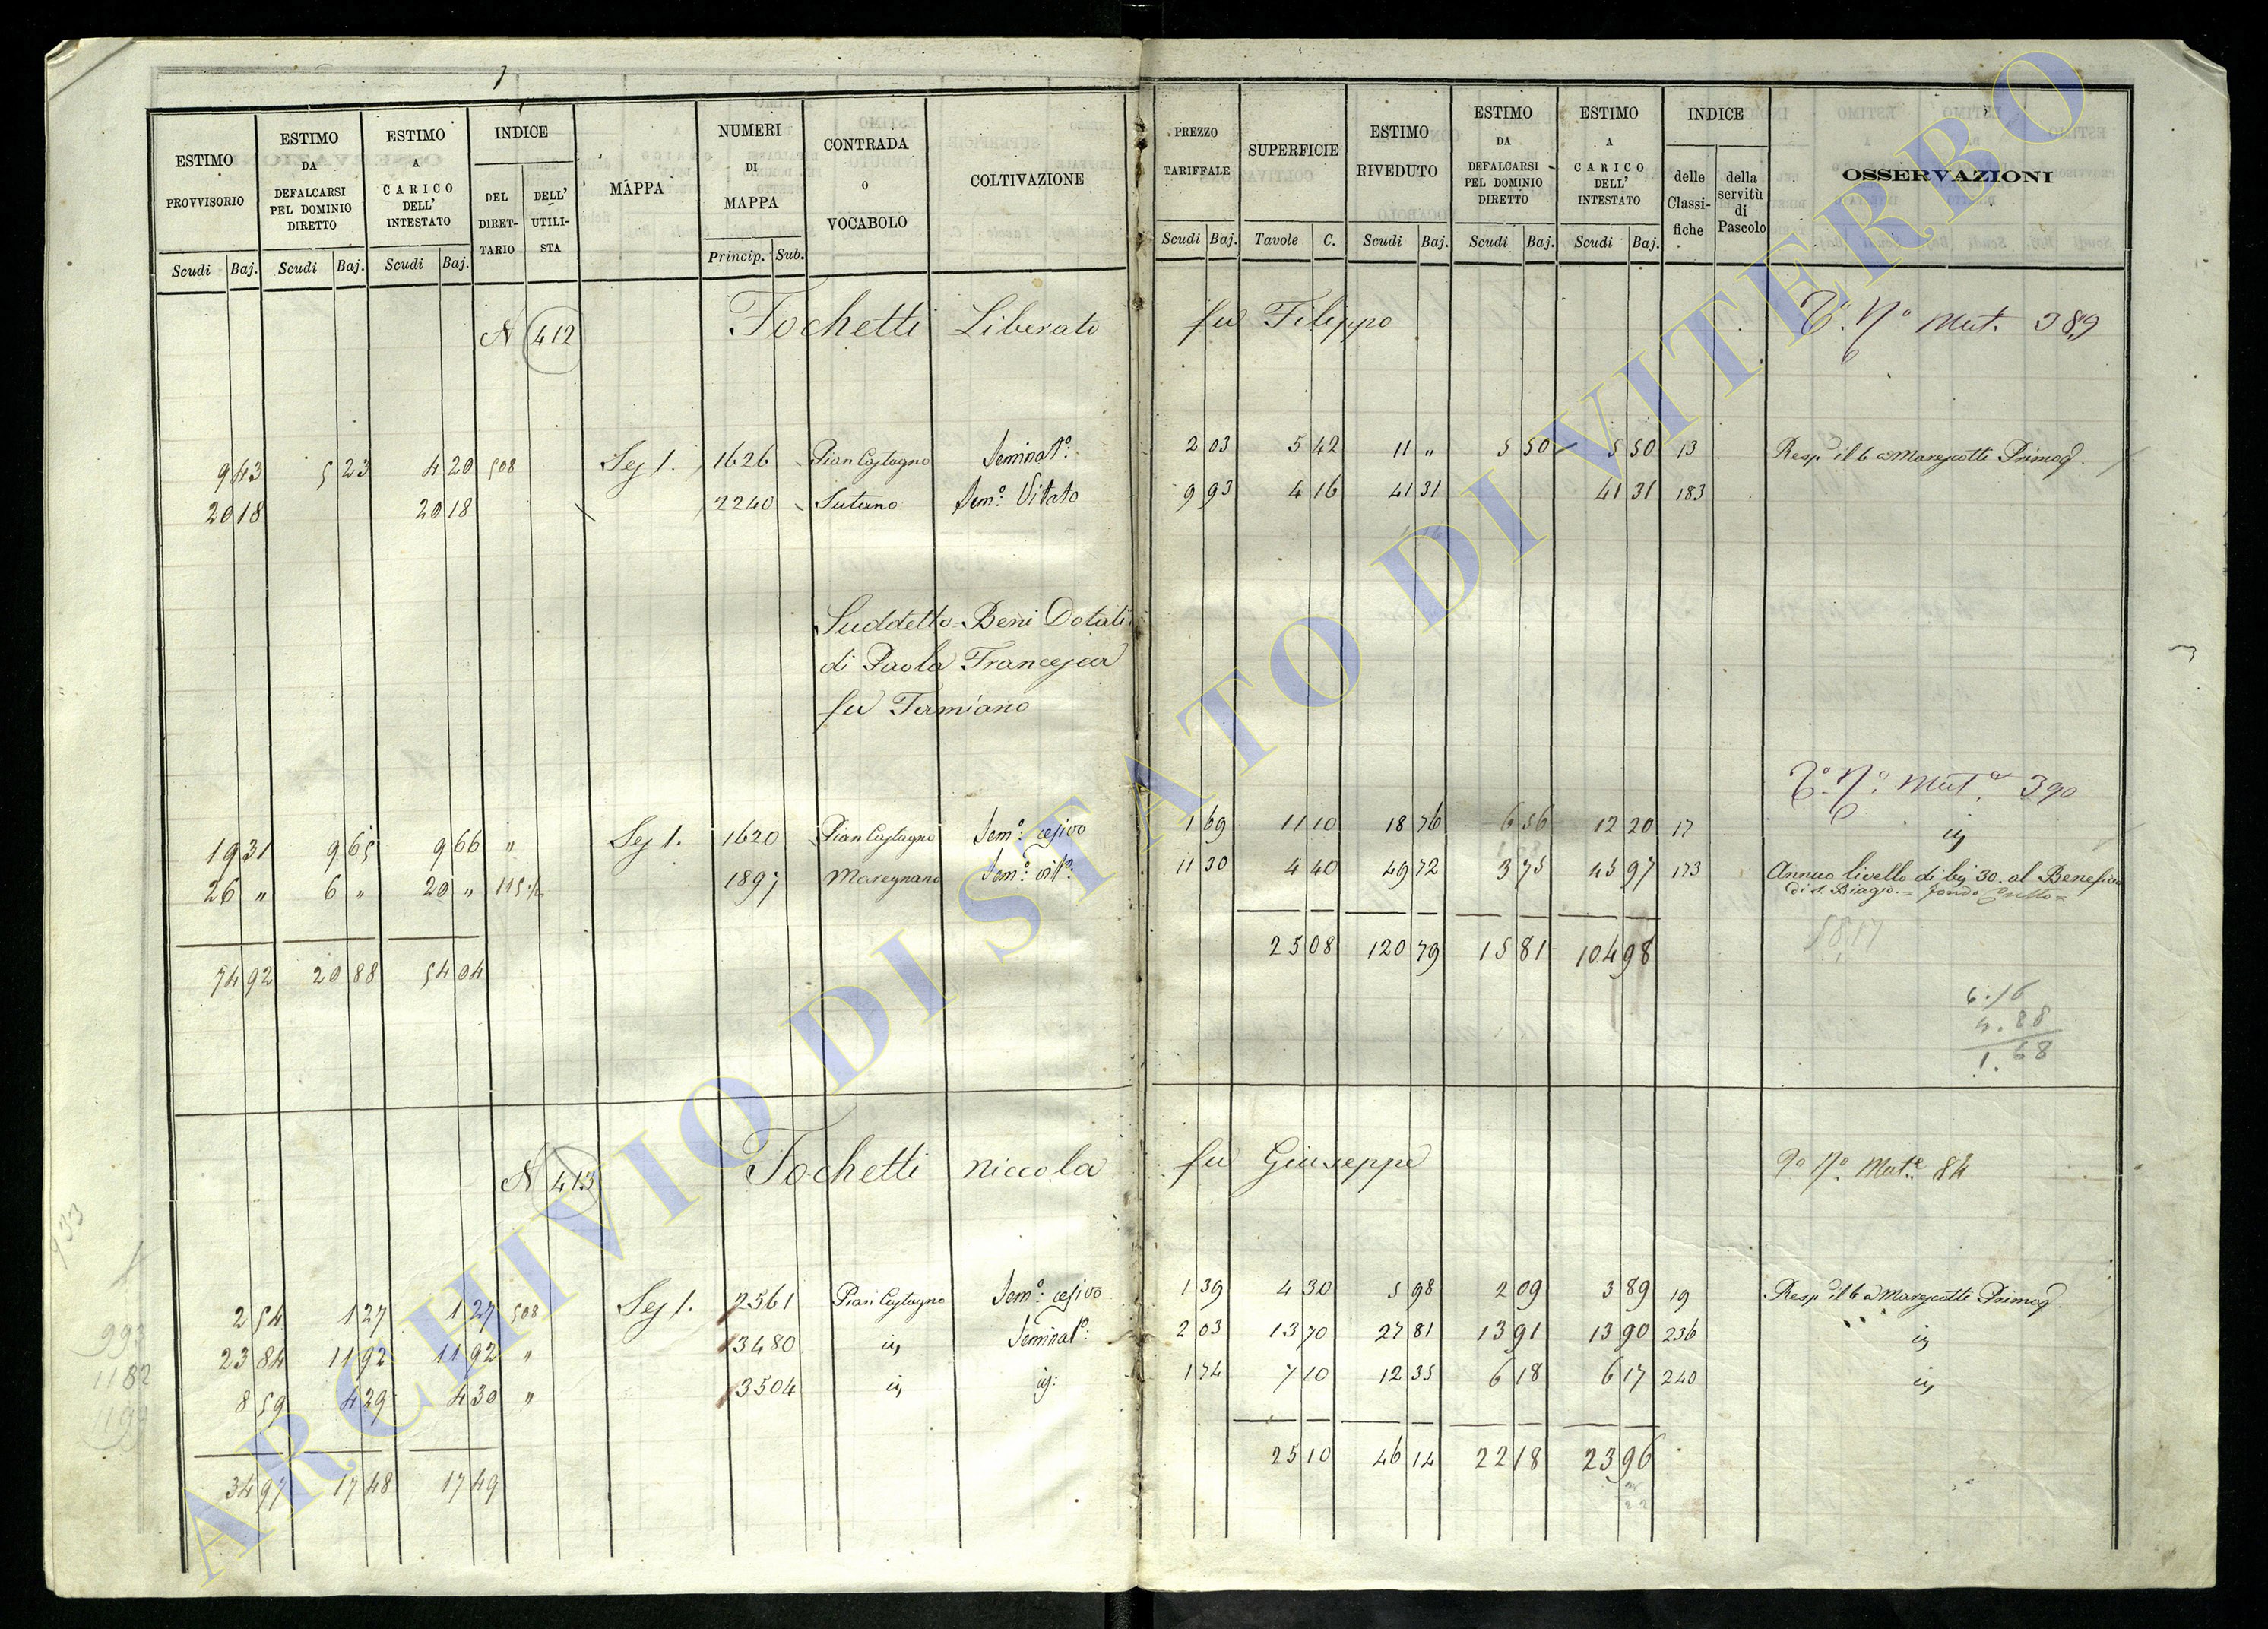 ESTIMO PROVVISORIO
ESTIMO DA DEFALCARSI PEL DOMINIO DIRETTO
ESTIMO A CARICO DELL' INTESTATO
INDICE
DEL DIRET- TARIO
DELL' UTILI- STA
MAPPA
NUMERI DI MAPPA
CONTRADA O VOCABOLO
COLTIVAZIONE
PREZZO TARIFFALE
SUPERFICIE
ESTIMO RIVEDUTO
ESTIMO DA DEFALCARSI PEL DOMINIO DIRETTO
ESTIMO A CARICO DELL' INTESTATO
INDICE
delle Classi- fiche
della servitù di Pascolo
OSSERVAZIONI
Scudi Baj. Scudi Baj. Scudi Baj. Princip. Sub. Scudi Baj. Tavole C. Scudi Baj. Scudi Baj. Scudi Baj.
N 412 Fochetti Liberato fu Filippo Mut. 389
9 43 5 23 4 20 508 Sez 1. 1626 Pian Castagno Seminat°: 2 03 5 42 11 „ 5 50 5 50 13 Resp. il Marescotti Primog.
20 18 20 18 2240 Sutano Sem°: Vitato 9 93 4 16 41 31 41 31 183
Suddetto Beni Dotali
di Paola Francesca
fu Tamiano
Mut.a 390
19 31 9 65 9 66 „ Sez 1. 1620 Pian Castagno Sem°: cesivo 1 69 11 10 18 76 6 56 12 20 17
26 „ 6 „ 20 „ 115½ 1897 Maregnano Sem°: vit°: 11 30 4 40 49 72 3 75 45 97 173 Annuo livello di bj 30. al Beneficio
di S. Biagio. = fondo Culto =
58.17
74 92 20 88 54 04 25 08 120 79 15 81 104 98
6.16
4.88
1.68
N 413 Fochetti Niccola fu Giuseppe N° Mut.e 84
2 54 1 27 1 27 508 Sez 1. 2561 Pian Castagno Sem°: cesivo 1 39 4 30 5 98 2 09 3 89 19 Resp. il Marescotti Primog.
23 84 11 92 11 92 „ 3480 Seminat°: 2 03 13 70 27 81 13 91 13 90 236
8 59 4 29 4 30 „ 3504 1 74 7 10 12 35 6 18 6 17 240
34 97 17 48 17 49 25 10 46 14 22 18 23 96
993
1182
ARCHIVIO DI STATO DI VITERBO